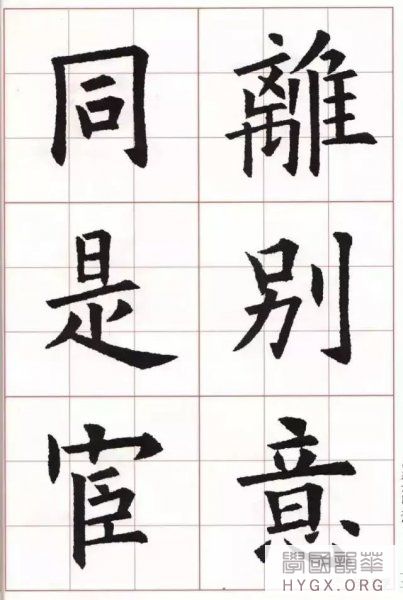 離别意
同是宦
學國韻華
HYGX.ORG